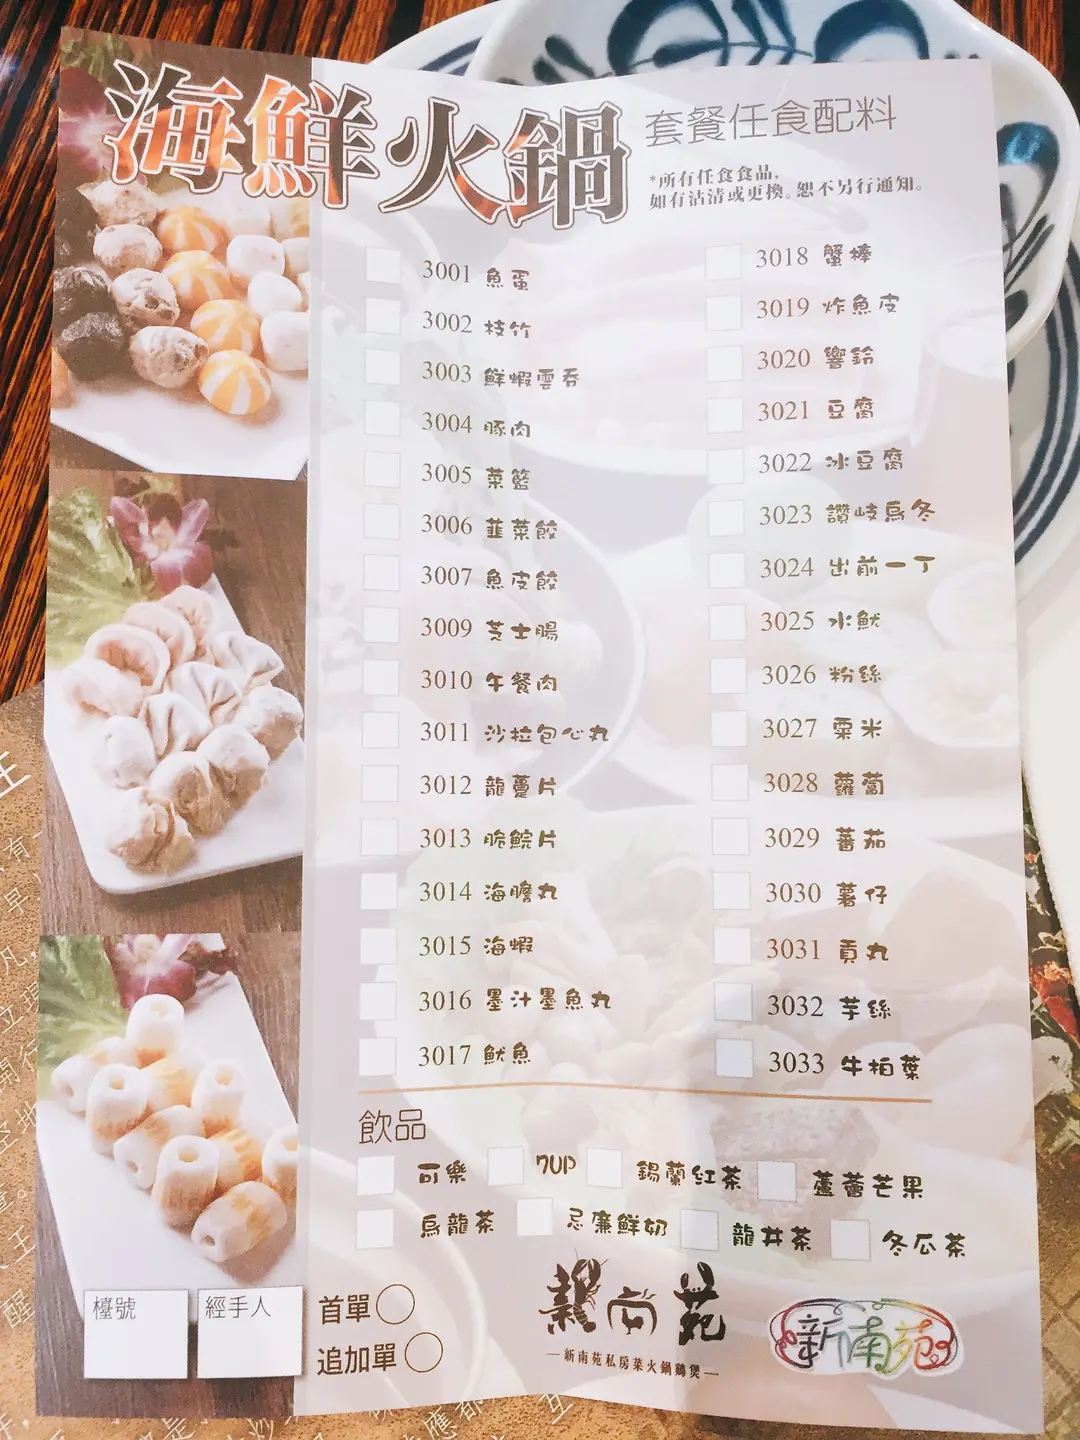 海鮮火鍋
套餐任食配料
*所有任食食品,
如有沽清或更換。恕不另行通知。
3001 魚蛋
3002 枝竹
3003 鮮蝦雲吞
3004 豚肉
3005 菜籃
3006 韮菜餃
3007 魚皮餃
3009 芝士腸
3010 午餐肉
3011 沙拉包心丸
3012 龍躉片
3013 脆鯇片
3014 海膽丸
3015 海蝦
3016 墨汁墨魚丸
3017 魷魚
3018 蟹棒
3019 炸魚皮
3020 響鈴
3021 豆腐
3022 冰豆腐
3023 讚岐烏冬
3024 出前一丁
3025 水魷
3026 粉絲
3027 粟米
3028 蘿蔔
3029 蕃茄
3030 薯仔
3031 貢丸
3032 芋絲
3033 牛柏葉
飲品
可樂 7UP 錫蘭紅茶 蘆薈芒果
烏龍茶 忌廉鮮奶 龍井茶 冬瓜茶
檯號
經手人
首單
追加單
新南苑私房菜火鍋鷄煲
新南苑